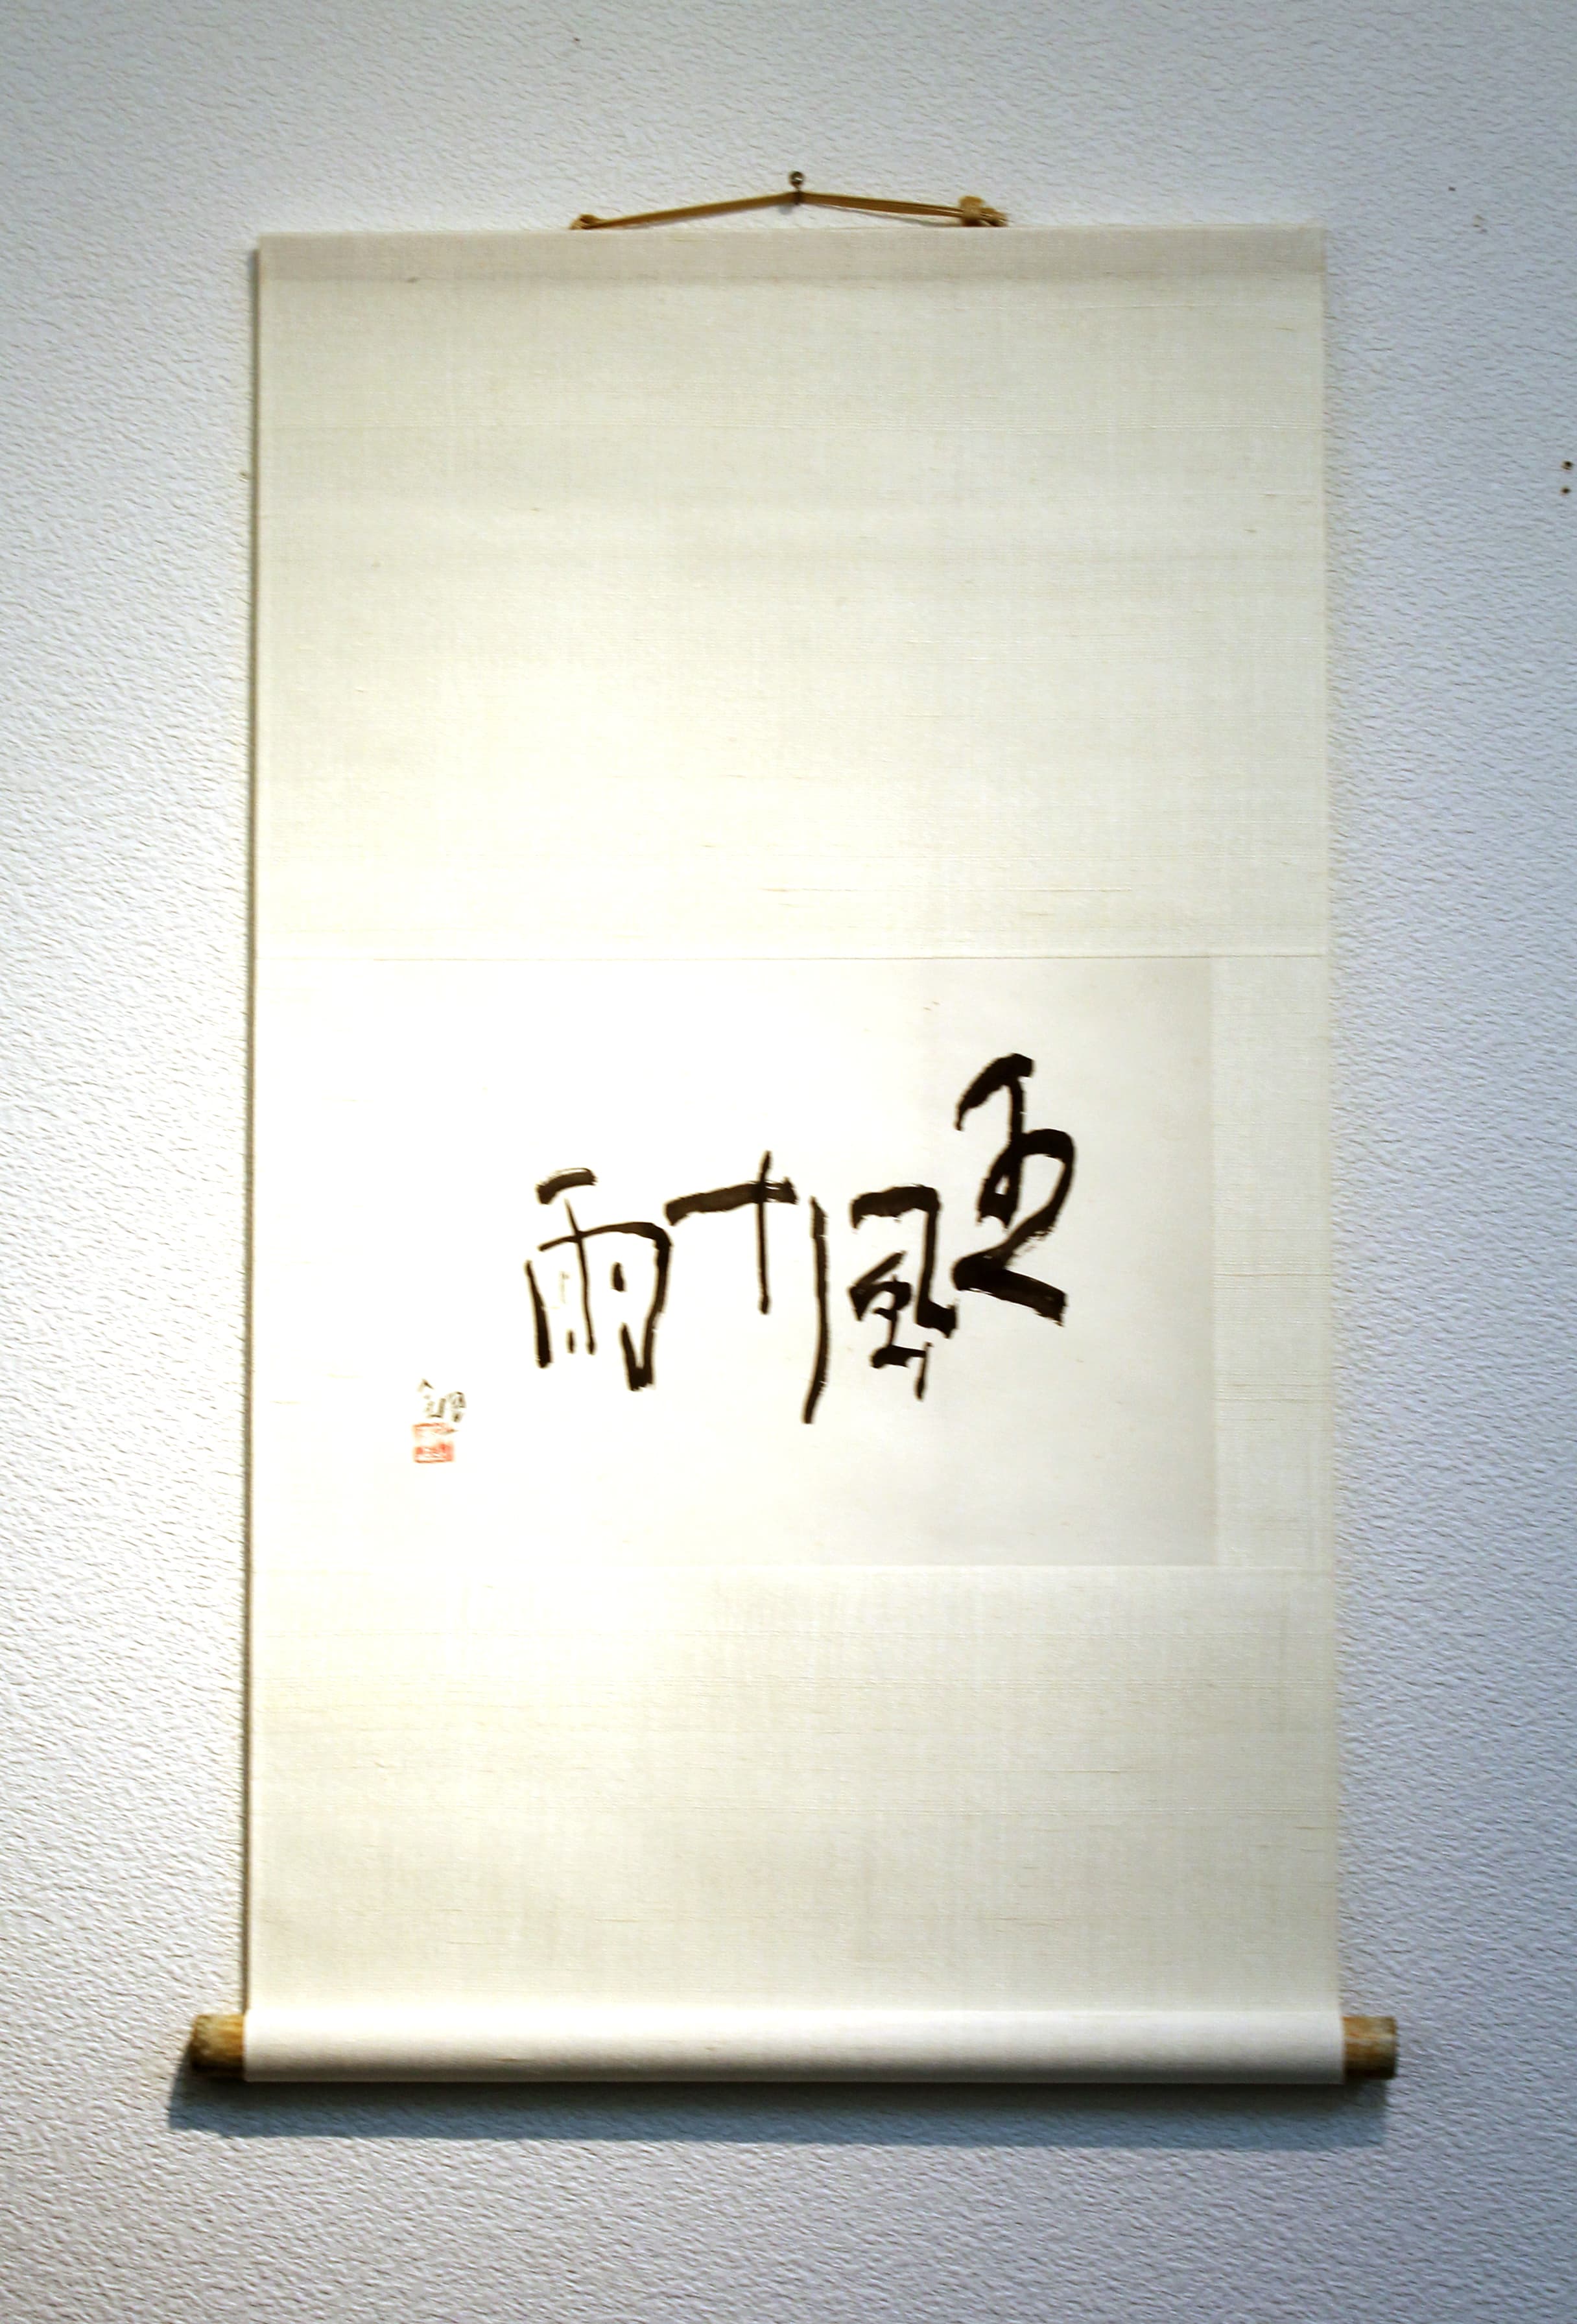 五風十雨